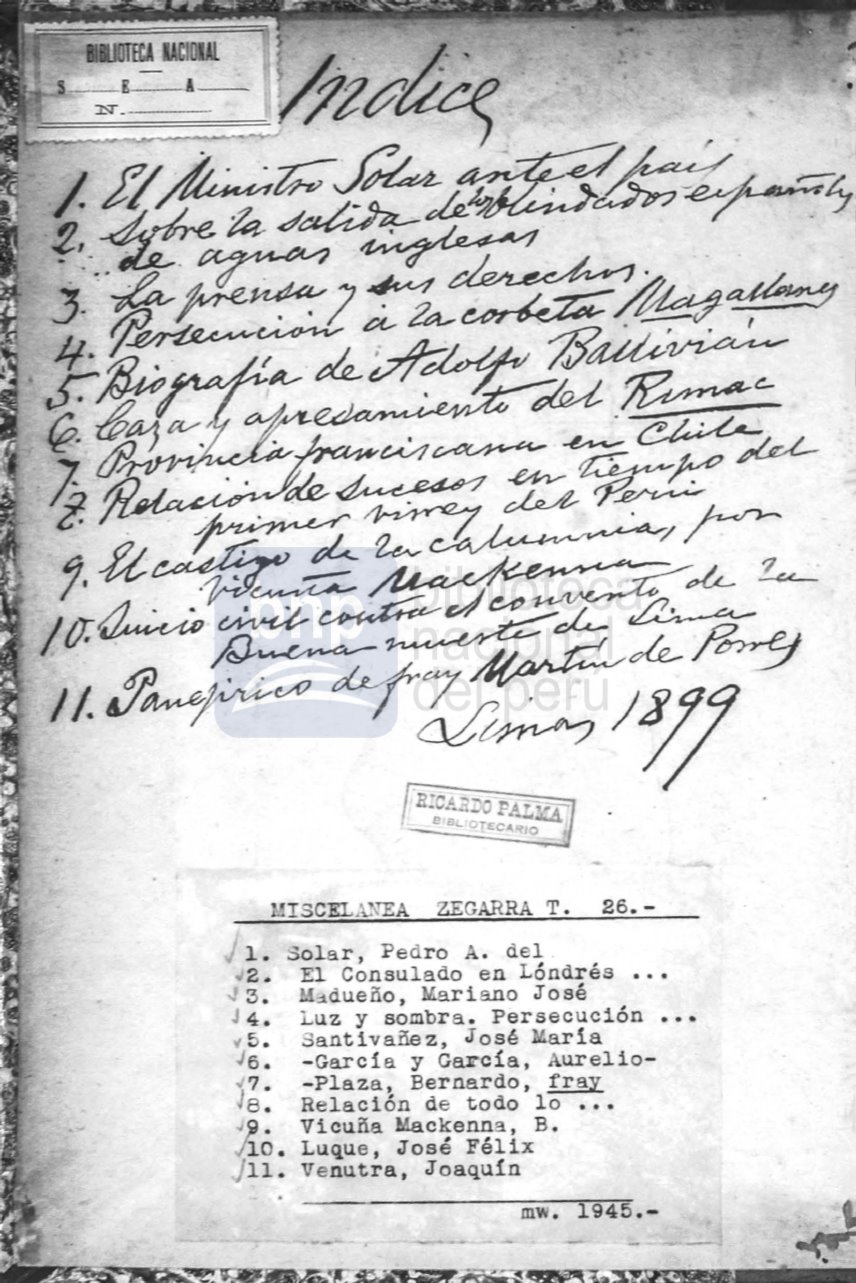 BIBLIOTECA NACIONAL
S E A
N.
Indice
1. El Ministro Solar ante el país
2. Sobre la salida de los blindados españoles
de aguas inglesas
3. La prensa y sus derechos.
4. Persecución a la corbeta Magallanes
5. Biografía de Adolfo Ballivián
6. Caza y apresamiento del Rimac
7. Provincia franciscana en Chile
8. Relación de sucesos en tiempo del
primer virrey del Perú
9. El castigo de la calumnia, por
Vicuña Mackenna
10. Juicio civil contra el convento de la
Buena muerte de Lima
11. Panegirico de fray Martín de Porres
Lima, 1899
bnp biblioteca
nacional
del perú
RICARDO PALMA
BIBLIOTECARIO
MISCELANEA ZEGARRA T. 26.-
1. Solar, Pedro A. del
2. El Consulado en Lóndrés ...
3. Madueño, Mariano José
4. Luz y sombra. Persecución ...
5. Santivañez, José María
6. -García y García, Aurelio-
7. -Plaza, Bernardo, fray
8. Relación de todo lo ...
9. Vicuña Mackenna, B.
10. Luque, José Félix
11. Venutra, Joaquín
mw. 1945.-